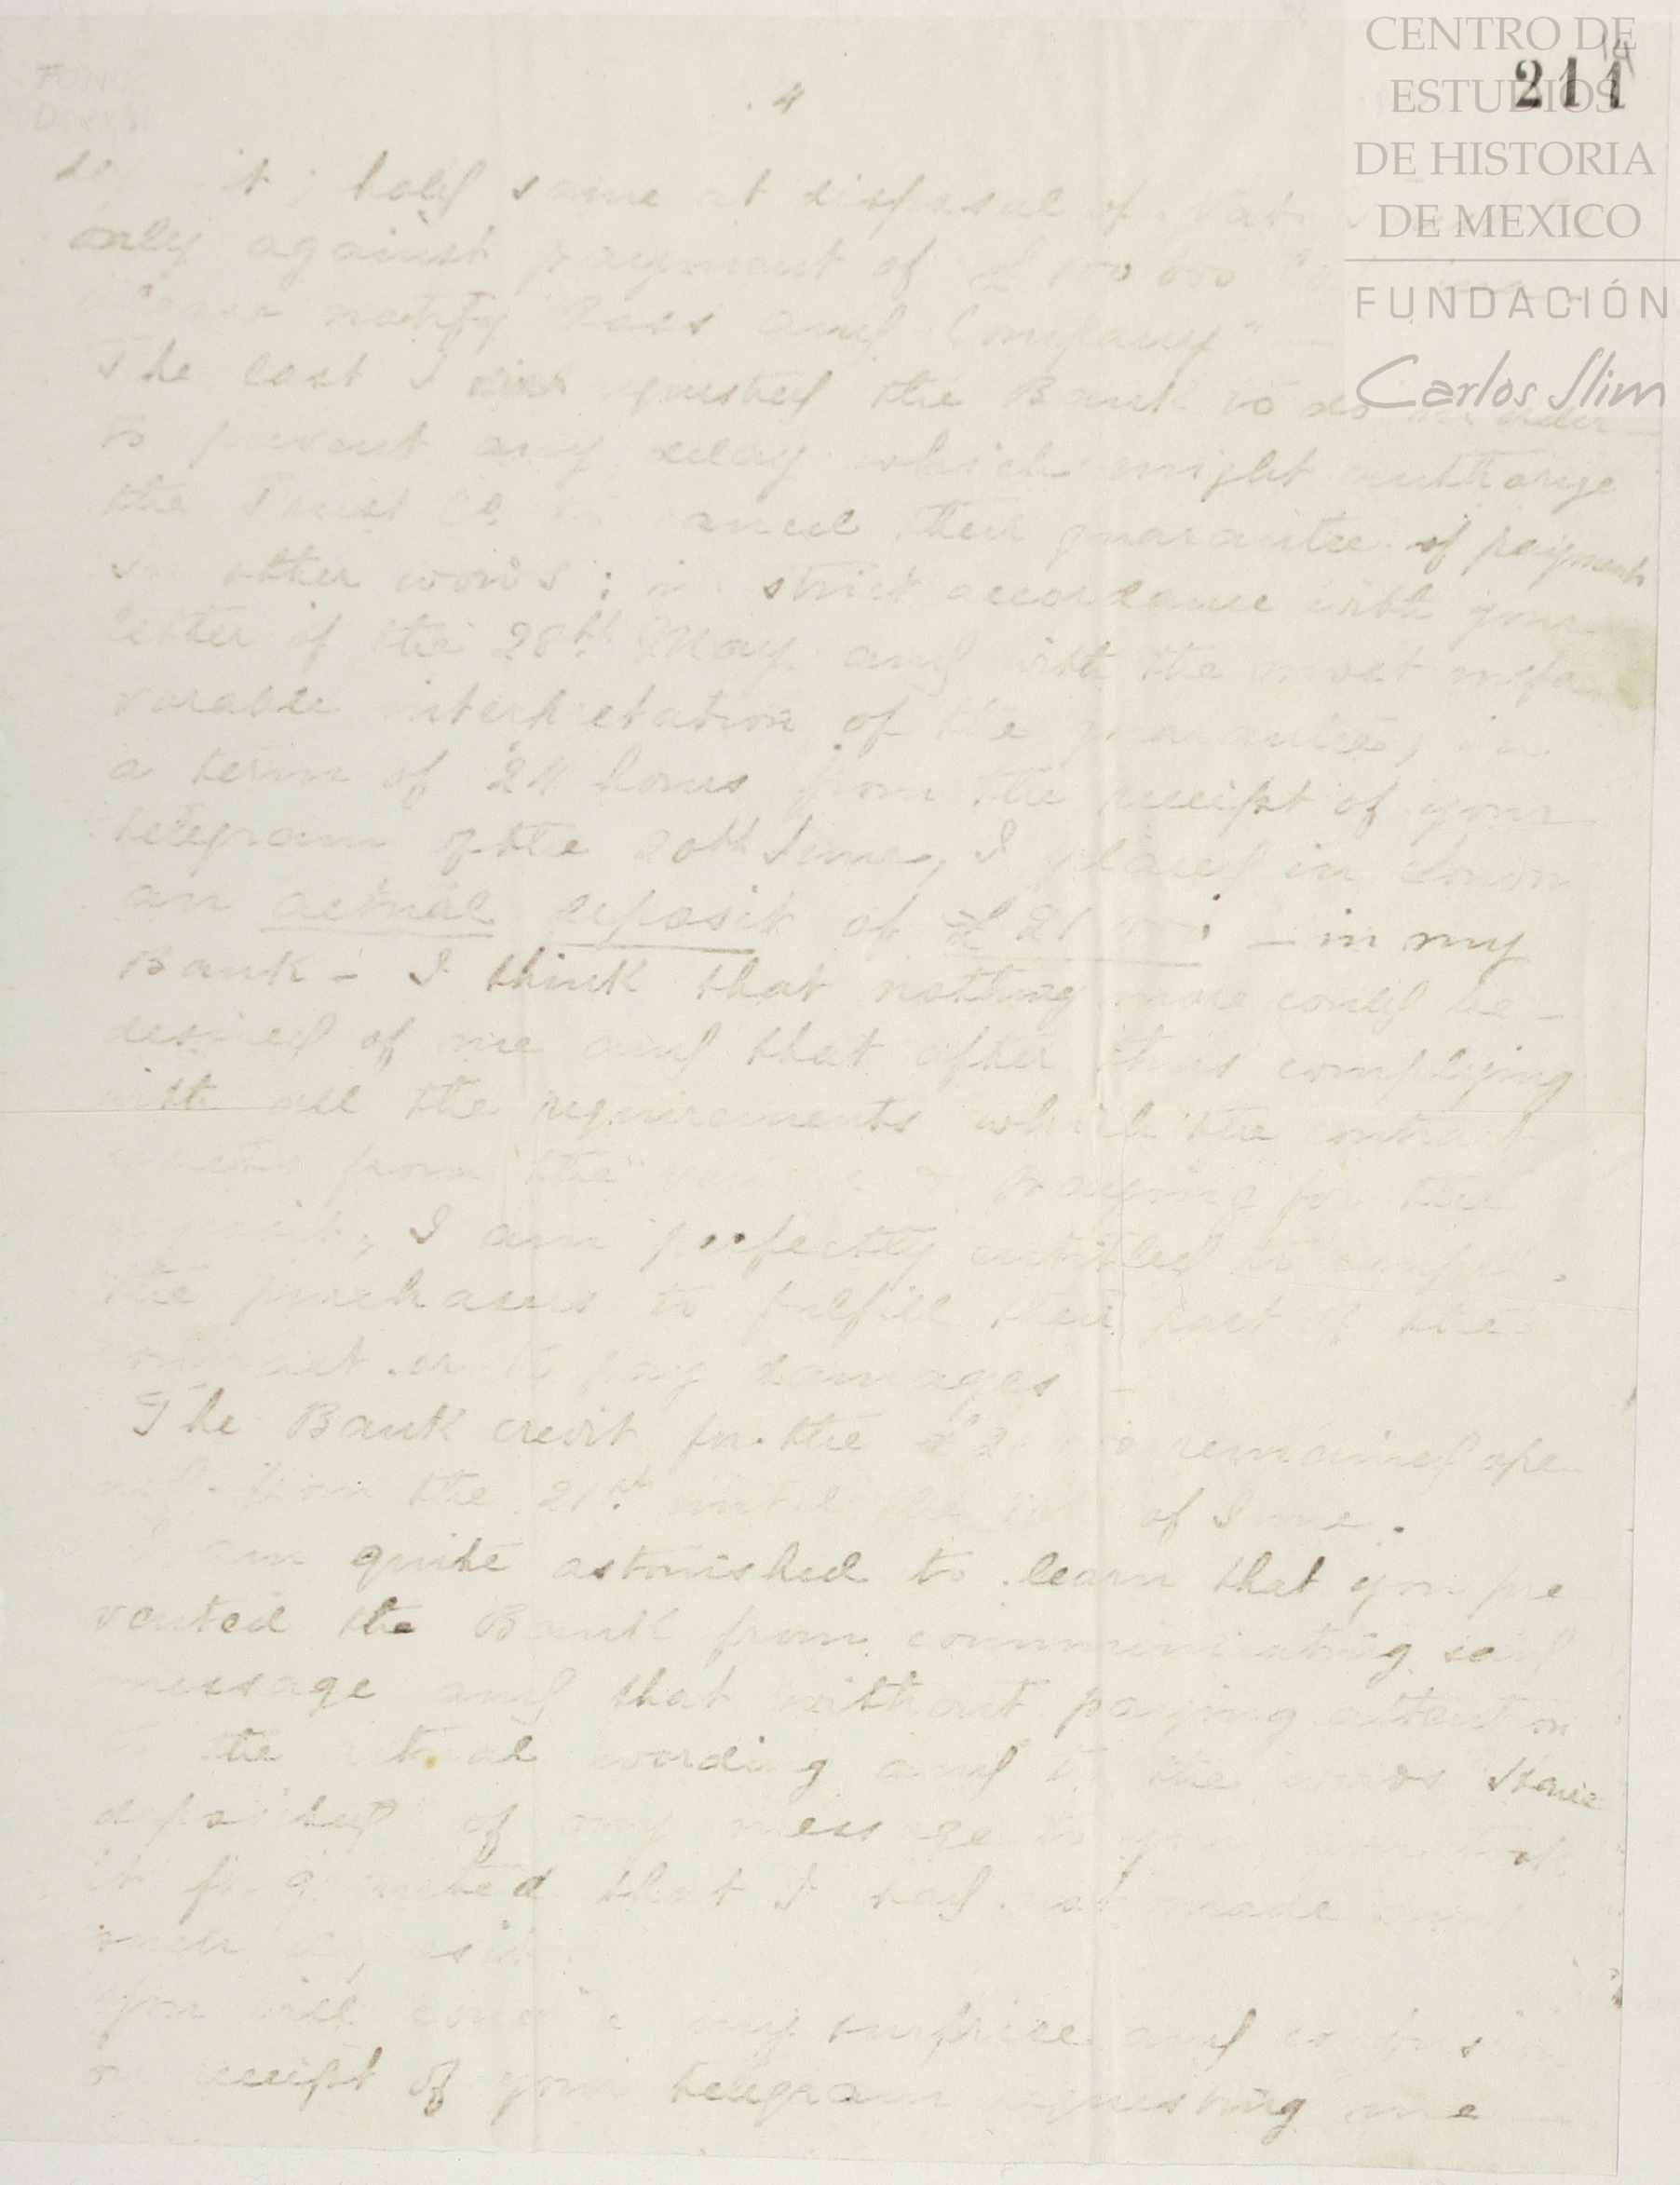 CENTRO DE
ESTUDIOS
DE HISTORIA
DE MEXICO
FUNDACIÓN
Carlos Slim
211
4
it; hold same at disposal of
only against payment of £
notify and Company" —
The last I requested the Bank to do in order —
to prevent any delay which might authorize
the Trust Co. to cancel their guarantee of payment
In other words: in strict accordance with your
letter of the 28th May and with the most unfa
vorable interpretation of the guarantee, in
a term of 24 hours from the receipt of your
telegram of the 20th June, I placed in London
an actual deposit of £ 21 000 — in my
Bank — I think that nothing more could be —
desired of me and that after thus complying
with all the requirements which the contract
from the paying for the
deposit, I am perfectly entitled to compel
the purchasers to fulfill their part of the
contract or to pay damages —
The Bank credit for the £ 21 000 remained ope
ned from the 21st until the of June.
I am quite astonished to learn that you pre
vented the Bank from communicating said
message and that without paying attention
to the actual wording and to the words "have
deposited" of my message to you you took
it for granted that I had not made any
such deposit.
You will conceive my surprise and confusion
on receipt of your telegram requesting me —